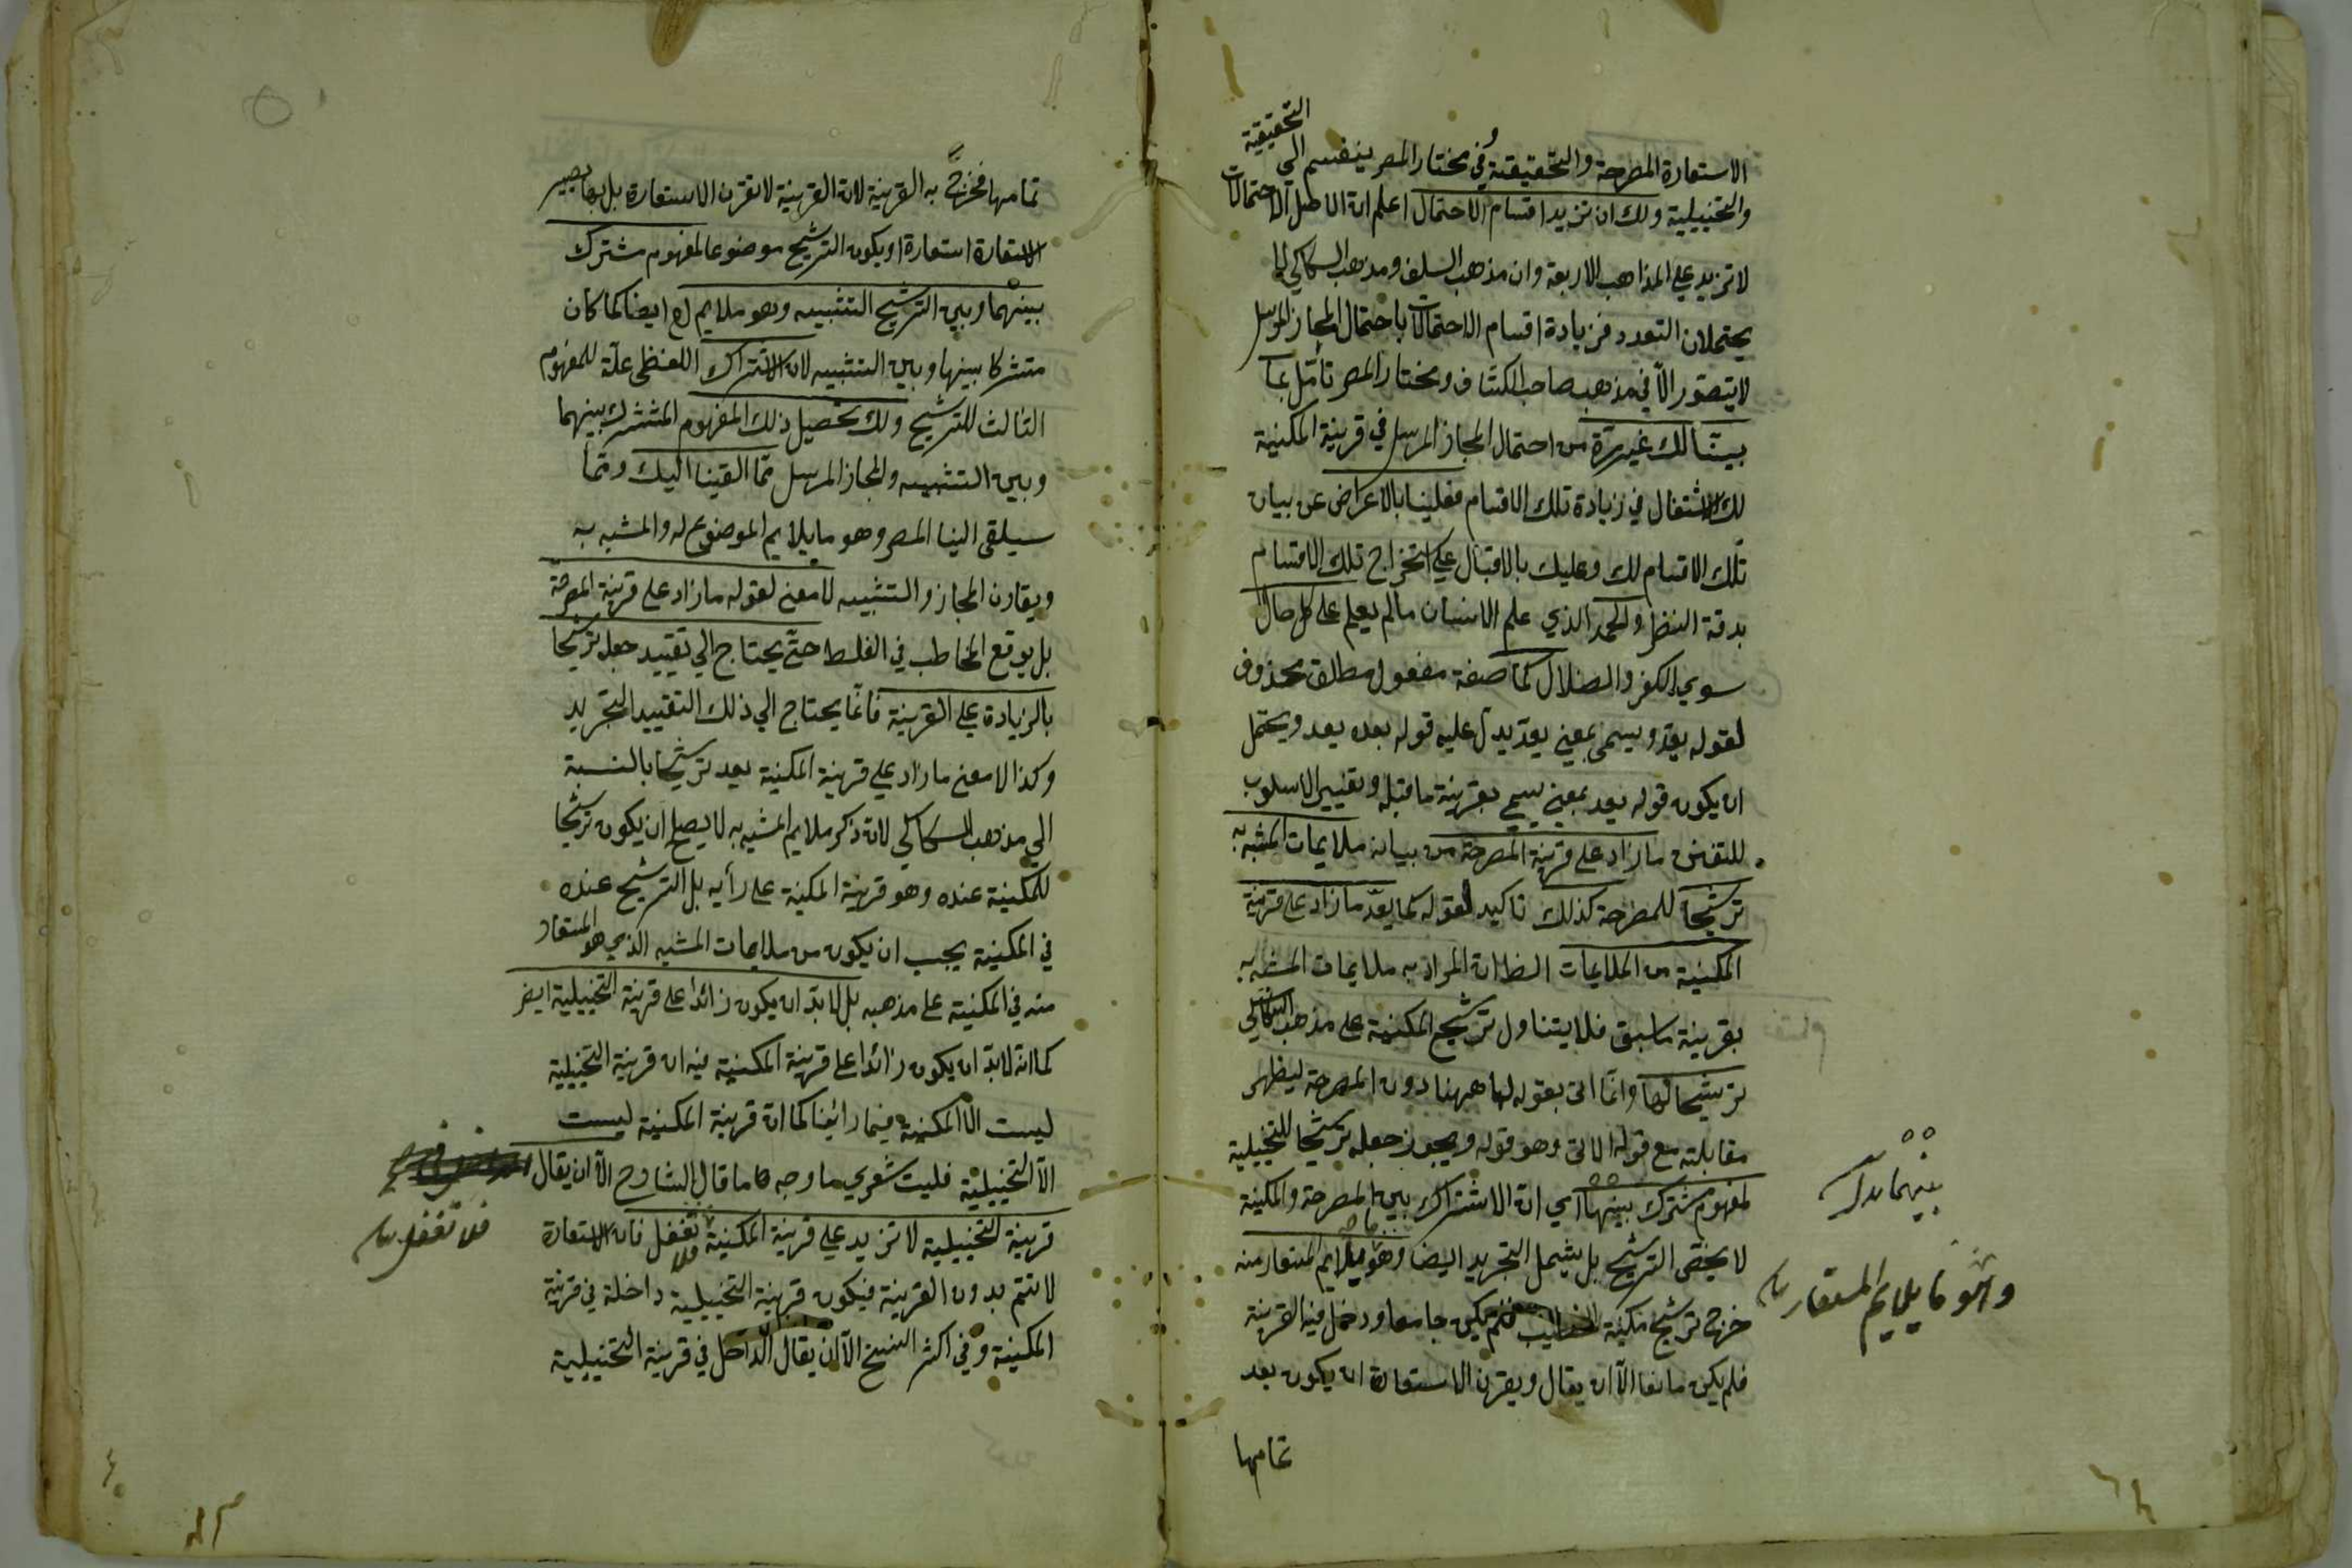 التحقيقية
الاستعارة المصرحة والتحقيقية وفي مختار المصر ينقسم الى
والتخييلية ولك ان تزيد اقسام الاحتمال اعلم ان الاحتمالات
لا تزيد على المذاهب الاربعة وان مذهب السلف ومذهب السكاكي لا
يحتملان التعدد فزيادة اقسام الاحتمالات باحتمال المجاز المرسل
لا يتصور الا في مذهب صاحب الكشاف ومختار المصر تأمل بما
بينا لك غير مرة من احتمال المجاز المرسل في قرينة المكنية
لك الاشتغال في زيادة تلك الاقسام فعلينا بالاعراض عن بيان
تلك الاقسام لك وعليك بالاقبال على استخراج تلك الاقسام
بدقة النظر والحمد الذي علم الانسان مالم يعلم على كل حال
سوى الكفر والضلال كما صفة مفعول مطلق محذوف
لقوله يعد ويسمى بمعنى يعد يدل عليه قوله بعده يعد ويحتمل
ان يكون قوله يعد بمعنى يسمى بقرينة ما قبله وتغيير الاسلوب
للتفنن ما زاد على قرينة المصرحة من بيان ملايمات المشبه به
ترشيحا للمصرحة كذلك تاكيد لقوله كما يعد ما زاد على قرينة
المكنية من الملايمات الظ ان المراد به ملايمات المشبه به
بقرينة ما سبق فلا يتناول ترشيح المكنية على مذهب السكاكي
ترشيحا لها وانما اتى بقوله لها ههنا دون المصرحة ليظهر
مقابلته مع قوله الاتى وهو قوله ويجوز جعله ترشيحا للتخييلية
لمفهوم مشترك بينهما اي ان الاشتراك بين المصرحة والمكنية
لا يختص الترشيح بل يشمل التجريد ايضا وهو ما يلايم المستعار منه
خرج ترشيح مكنية فلم يكن جامعا ودخل فيه القرينة
فلم يكن مانعا الا ان يقال ويقرن الاستعارة ان يكون بعد
تمامها
بينهما
وهو ما يلايم المستعار
تمامها فخرج به القرينة لان القرينة لا تقرن الاستعارة بل بها يصير
الاستعارة استعارة او يكون الترشيح موضوعا لمفهوم مشترك
بينهما وبين الترشيح التشبيه وهو ملايم ايضا كما كان
مشتركا بينها وبين التشبيه لان الاشتراك اللفظى علة للمفهوم
الثالث للترشيح ولك تحصيل ذلك المفهوم المشترك بينهما
وبين التشبيه والمجاز المرسل مما القينا اليك ومما
سيلقى الينا المصر وهو ما يلايم الموضوع له والمشبه به
ويقارن المجاز والتشبيه لا معنى لقوله ما زاد على قرينة المصرحة
بل يوقع المخاطب في الغلط حتى يحتاج الى تقييد جعله ترشيحا
بالزيادة على القرينة فانما يحتاج الى ذلك التقييد التجريد
وكذا لا معنى ما زاد على قرينة المكنية يعد ترشيحا بالنسبة
الى مذهب السكاكي لان ذكر ملايم المشبه به لا يصلح ان يكون ترشيحا
للمكنية عنده وهو قرينة المكنية على رأيه بل الترشيح عنده
في المكنية يجب ان يكون من ملايمات المشبه الذي هو المستعار
منه في المكنية على مذهبه بل لا بد ان يكون زائدا على قرينة التخييلية ايضر
كما انه لا بد ان يكون زائدا على قرينة المكنية فيه ان قرينة التخييلية
ليست الا المكنية فيما رائينا كما ان قرينة المكنية ليست
الا التخييلية فليت شعري ما وجه ما قال الشارح الا ان يقال
قرينة التخييلية لا تزيد على قرينة المكنية فلا تغفل فان الاستعارة
لا تتم بدون القرينة فيكون قرينة التخييلية داخلة في قرينة
المكنية وفي اكثر النسخ الا ان يقال الداخل في قرينة التخييلية
فلا تغفل